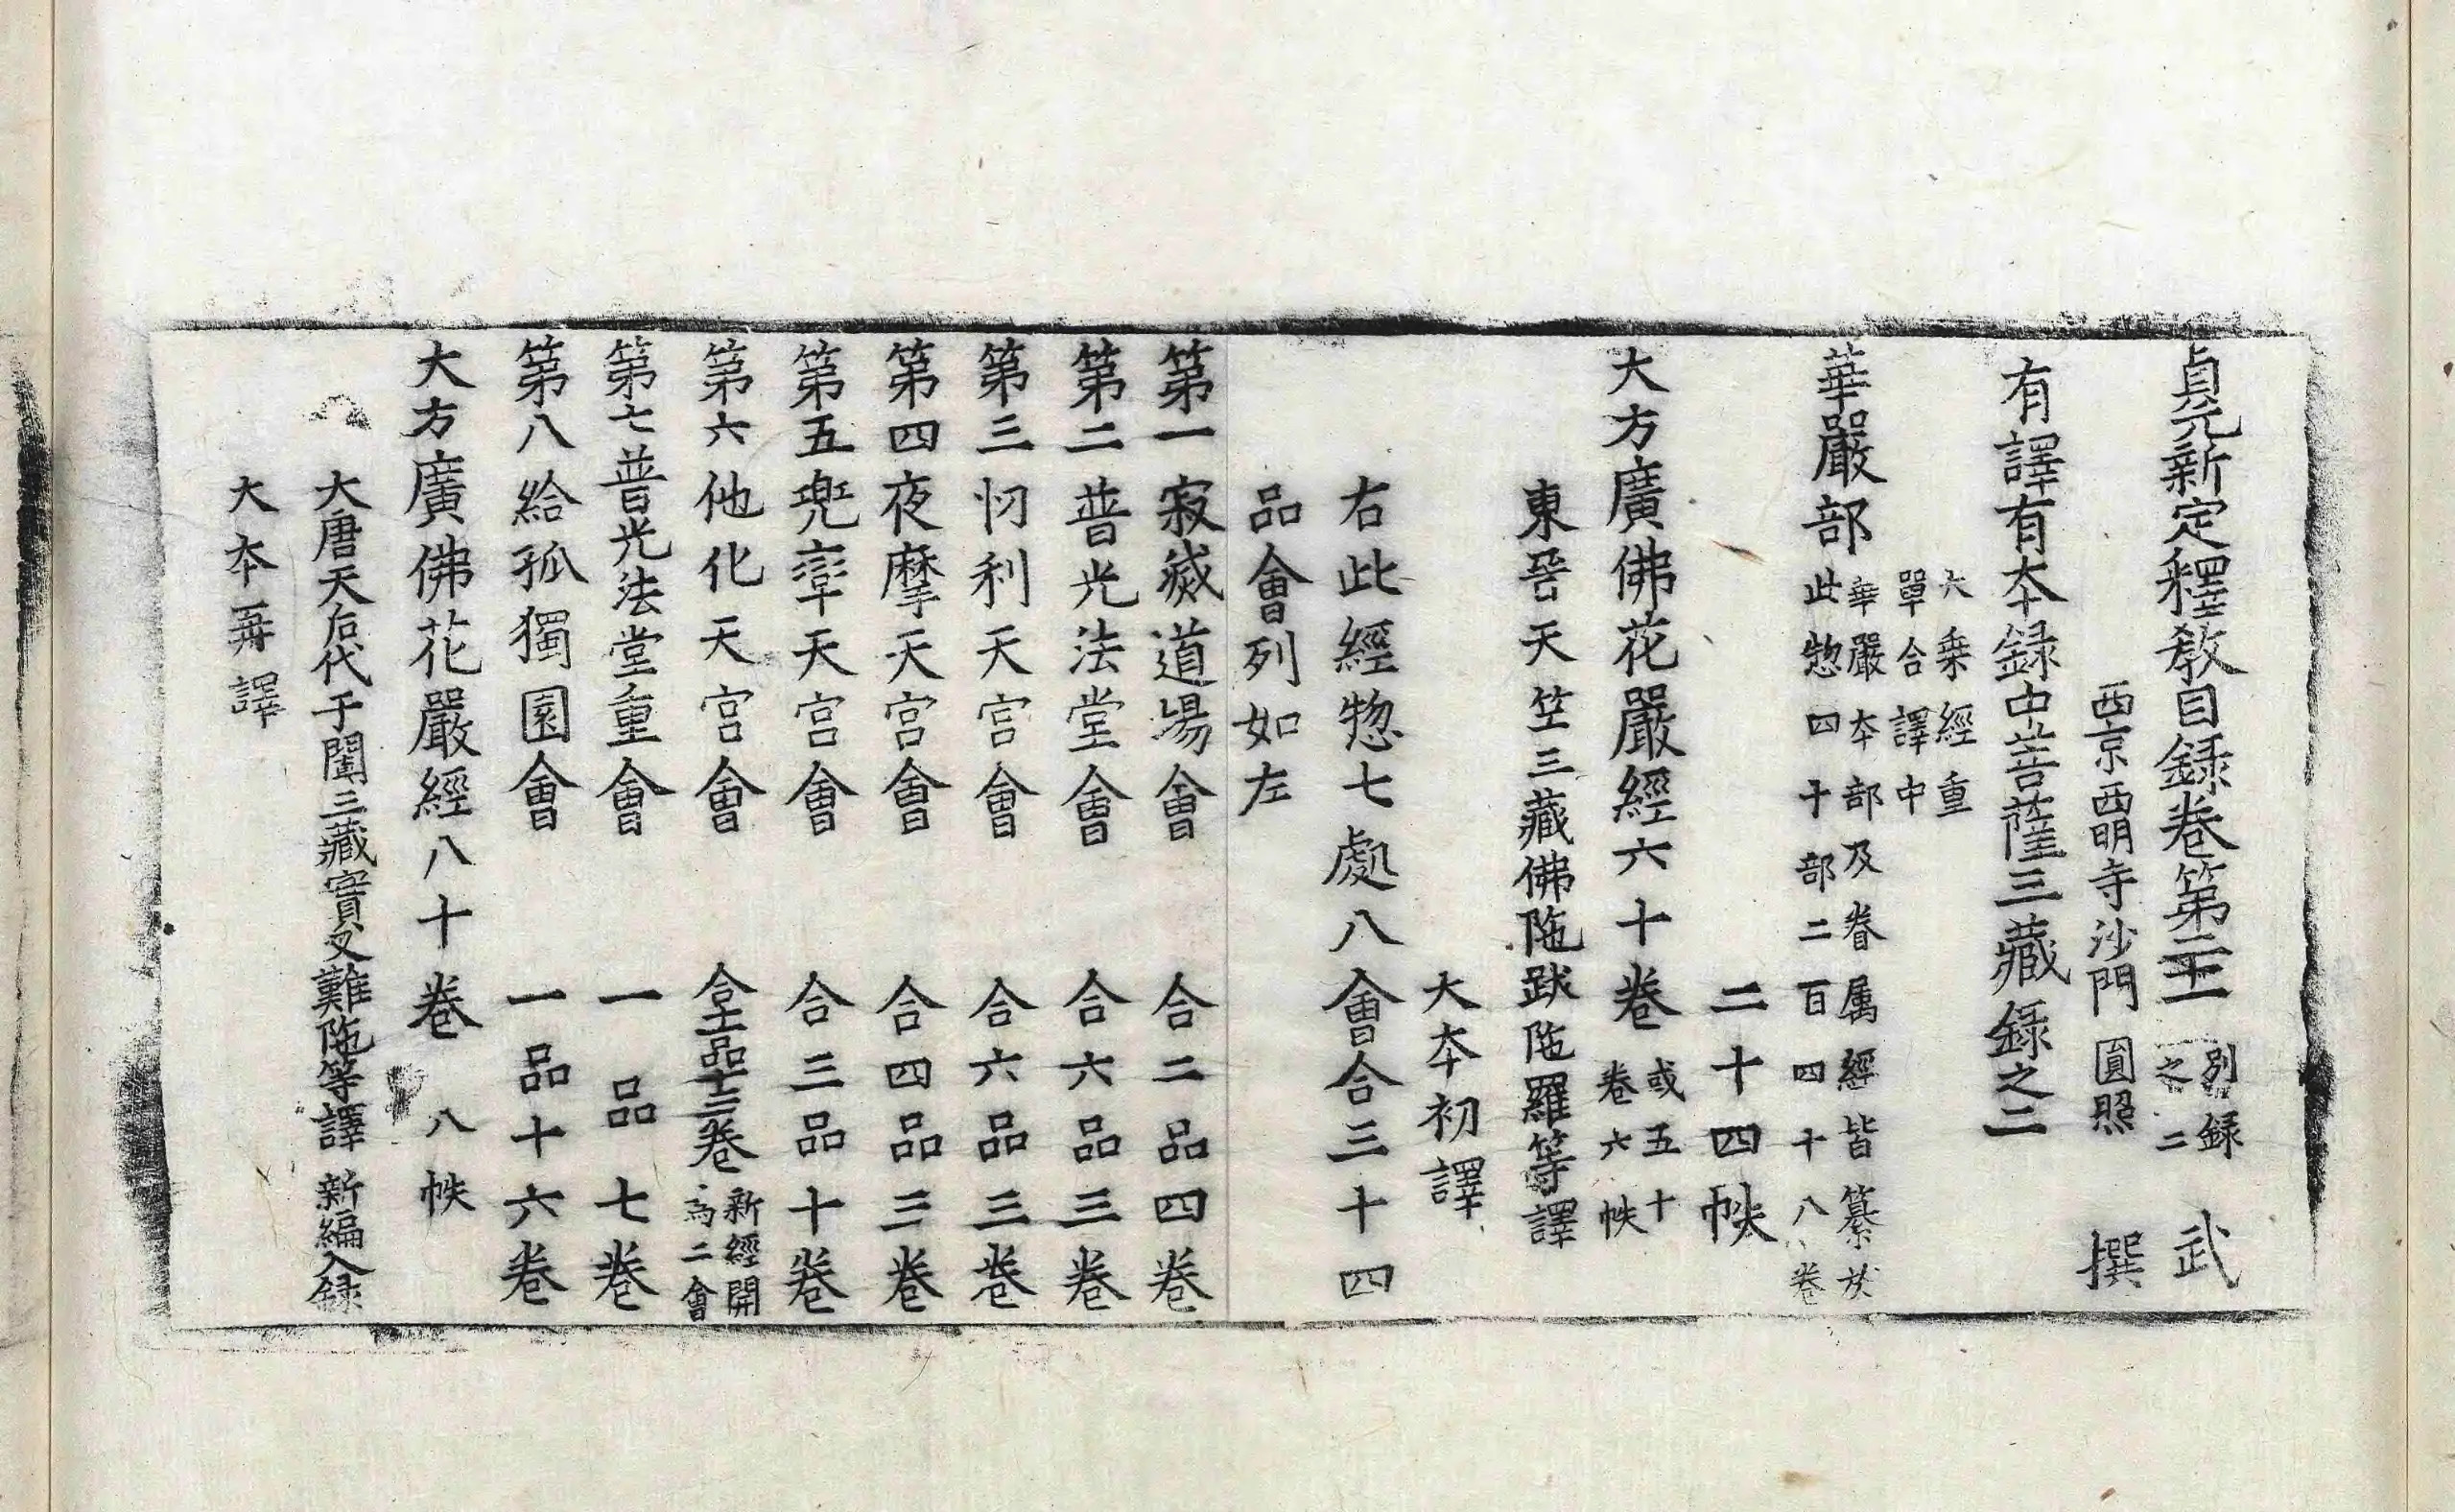 貞元新定釋教目録卷第二十一 別録之二 武
西京西明寺沙門 圓照 撰
有譯有本録中菩薩三藏録之二
大乗經重單合譯中
華嚴部 華嚴本部及眷属經皆纂於此惣四十部二百四十八卷
二十四帙
大方廣佛花嚴經六十卷 或五十卷六帙
東晉天竺三藏佛陁跋陁羅等譯
大本初譯
右此經惣七處八會合三十四
品會列如左
第一寂滅道場會 合二品四卷
第二普光法堂會 合六品三卷
第三忉利天宮會 合六品三卷
第四夜摩天宮會 合四品三卷
第五兜率天宮會 合三品十卷
第六他化天宮會 合十一品十三卷 新經開為二會
第七普光法堂重會 一品七卷
第八給孤獨園會 一品十六卷
大方廣佛花嚴經八十卷 八帙
大唐天后代于闐三藏實叉難陁等譯 新編入録
大本再譯